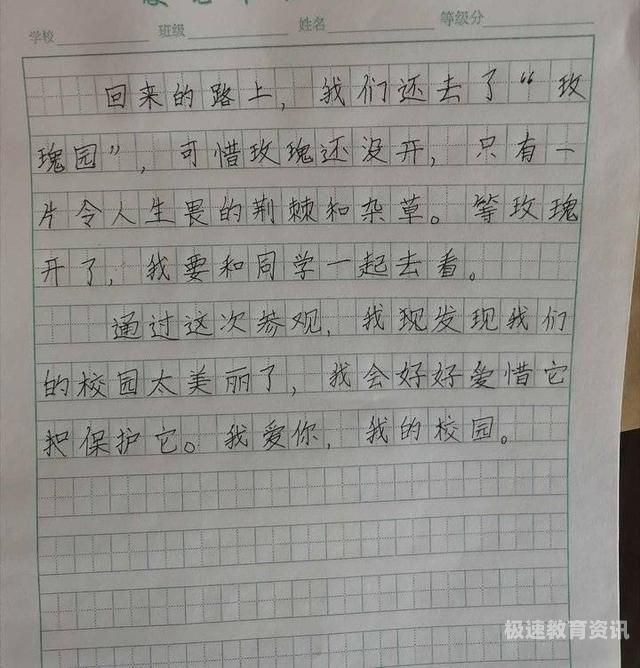 学校 班级 姓名 等级分
回来的路上，我们还去了“玫
瑰园”，可惜玫瑰还没开，只有一
片令人生畏的荆棘和杂草。等玫瑰
开了，我要和同学一起去看。
通过这次参观，我现发现我们
的校园太美丽了，我会好好爱惜它
护它。我爱你，我的校园。
极速教育资讯